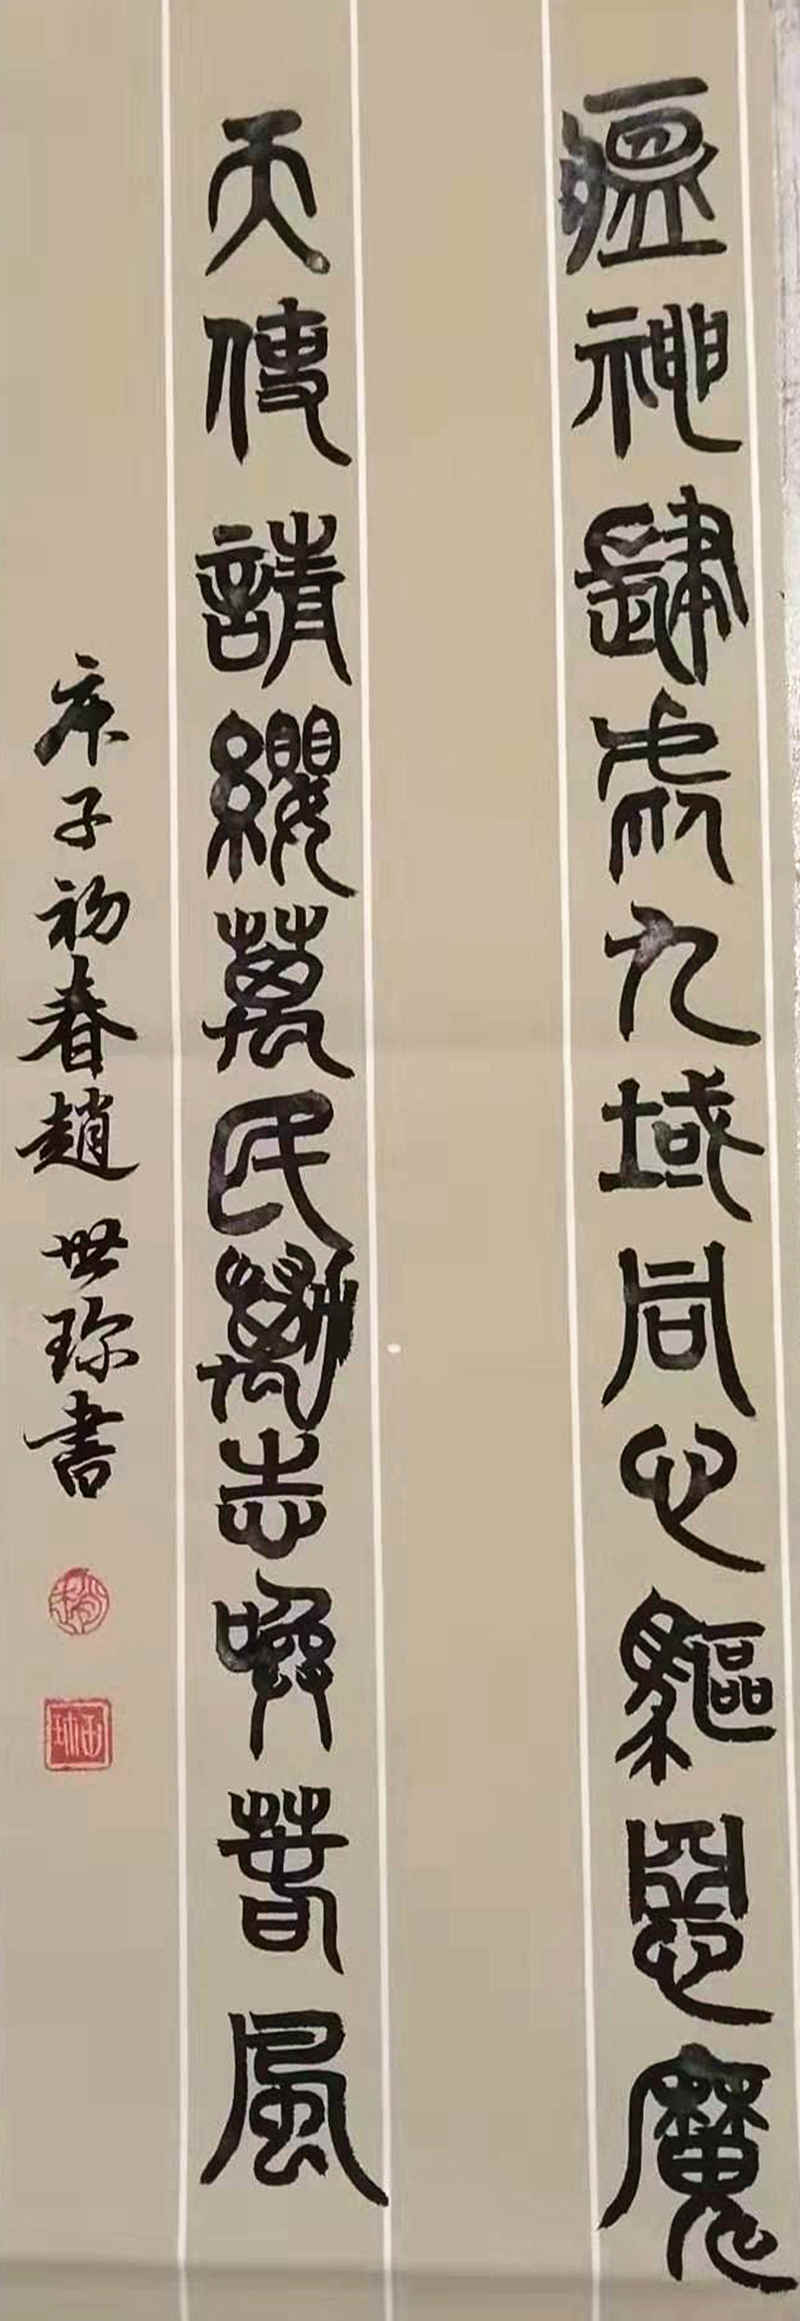 瘟神肆虐九域同心驅惡魔
天使請纓萬民勵志喚春風
庚子初春趙世珍書